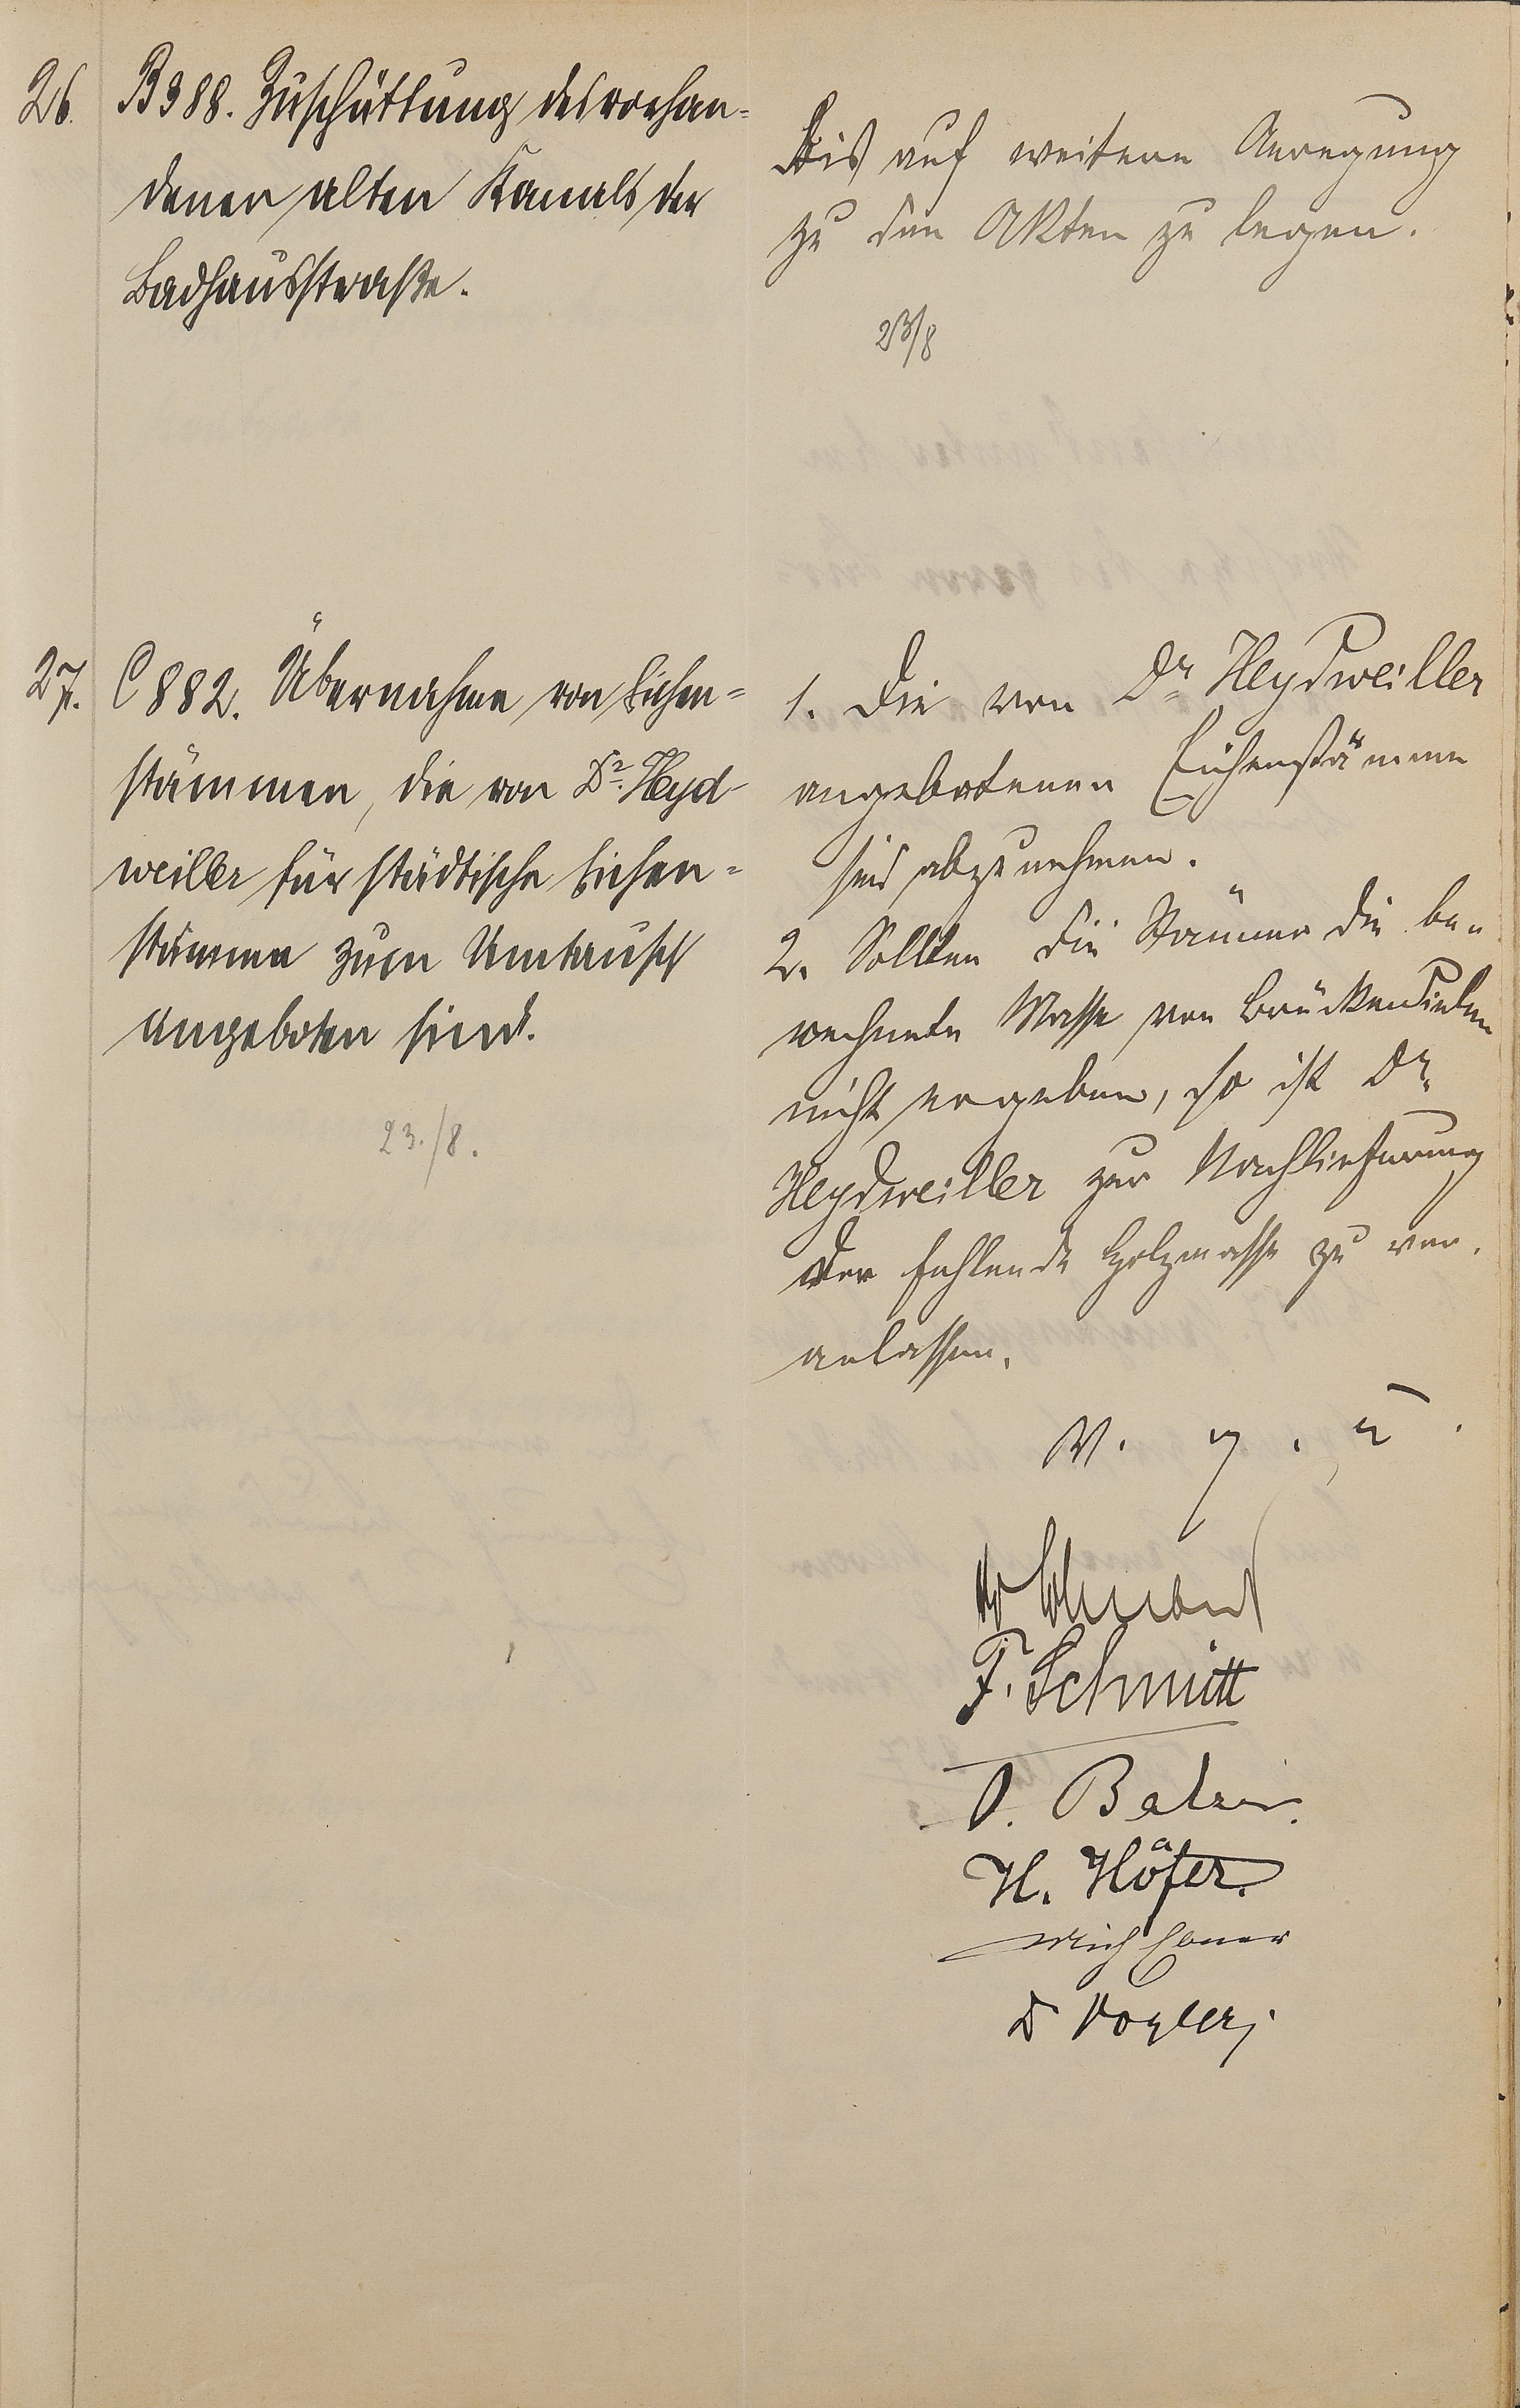 26.
B 388. Zuschüttung des vorhan-
denen alten Kanals der
Badhausstraße.
Bis auf weitere Anregung
zu den Akten zu legen.
23/8
27.
C 882. Übernahme von Eichen-
stämmen, die von Dr. Heyd-
weiller für städtische Eichen-
stämme zum Umtausch
angeboten sind.
23./8.
1. Die von Dr. Heydweiller
angebotenen Eichenstämme
sind abzunehmen.
2. Sollten die Stämme die be-
rechnete Masse von Brückendielen
nicht ergeben, so ist Dr.
Heydweiller zur Nachlieferung
der fehlende Holzmasse zu ver-
anlassen.
V. g. u.
F. Schmitt
H. Höfer.